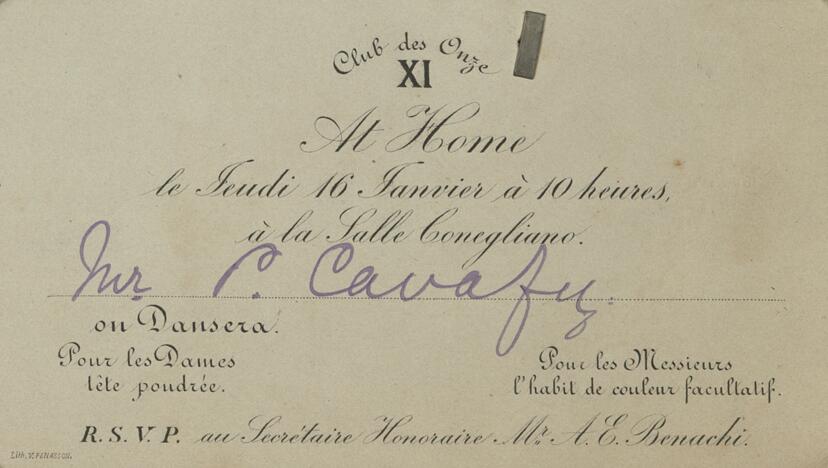 Club des Onze
XI
At Home
le Jeudi 16 Janvier à 10 heures,
à la Salle Conegliano.
Mr. P. Cavafy.
on Dansera.
Pour les Dames
tête poudrée.
Pour les Messieurs
l'habit de couleur facultatif.
R. S. V. P. au Secrétaire Honoraire Mr. A. E. Benachi.
Lith. V. PENASSON.